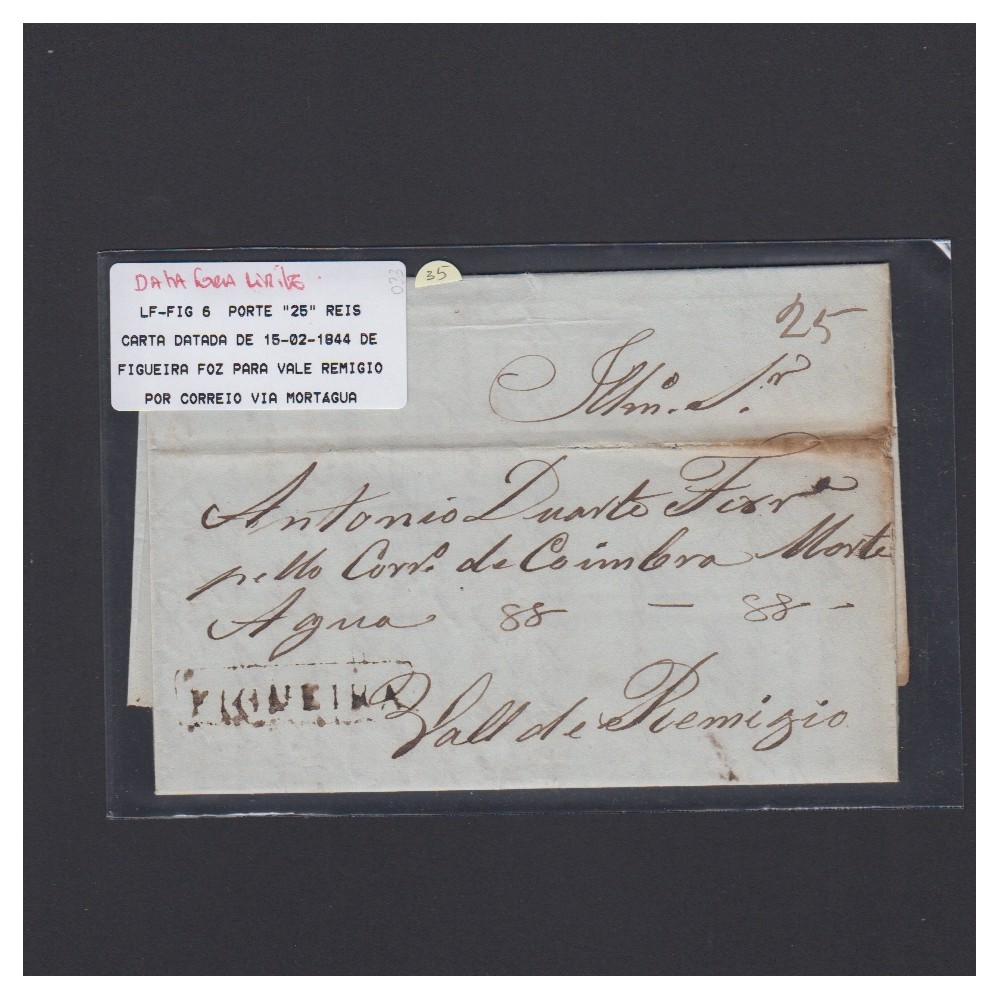 DATA FORA LIMITE
023
LF-FIG 6 PORTE "25" REIS
CARTA DATADA DE 15-02-1844 DE
FIGUEIRA FOZ PARA VALE REMIGIO
POR CORREIO VIA MORTÁGUA
35
25
Illmo. Sr.
Antonio Duarte Ferra
pello Corro. de Coimbra Morte
Agua 88 — 88 -
FIGUEIRA
Vall de Remigio